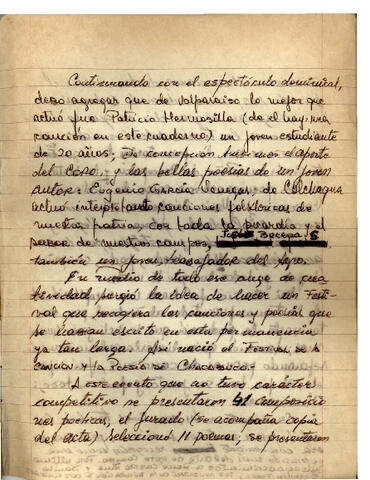 Continuando con el espectáculo dominical,
debo agregar que de Valparaíso lo mejor que
actuó fue Patricio Hermosilla (de el hay una
canción en este cuaderno) un joven estudiante
de 20 años, de Concepción tuvimos el aporte
del Coro, y las bellas poesías de un joven
autor: Eugenio García Venegas; de Colchagua
actuó interpretando canciones folklóricas de
nuestra patria, con toda la picardía y el
sabor de nuestros campos,
también un joven trabajador del Agro.
En medio de todo ese auge de crea
tividad surgió la idea de hacer un Festi-
val que recogiera las canciones y poesías que
se habían escrito en esta permanencia
ya tan larga. Así nació el Festival de la
Canción y la Poesía de Chacabuco.-
A este evento que no tuvo carácter
competitivo se presentaron 41 composicio
nes poéticas, el Jurado (se acompaña copia
del acta) seleccionó 11 poemas; se presentaron